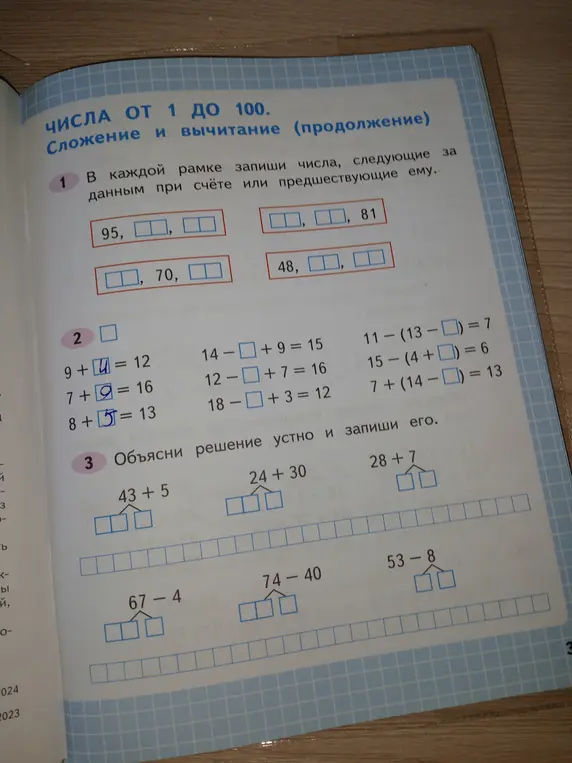 ЧИСЛА ОТ 1 ДО 100.
Сложение и вычитание (продолжение)
1 В каждой рамке запиши числа, следующие за
данным при счёте или предшествующие ему.
95, □□, □□
□□, □□, 81
□□, 70, □□
48, □□, □□
2 □
9 + 4 = 12
7 + 9 = 16
8 + 5 = 13
14 − □ + 9 = 15
12 − □ + 7 = 16
18 − □ + 3 = 12
11 − (13 − □) = 7
15 − (4 + □) = 6
7 + (14 − □) = 13
3 Объясни решение устно и запиши его.
43 + 5
24 + 30
28 + 7
67 − 4
74 − 40
53 − 8
3
2024
2023